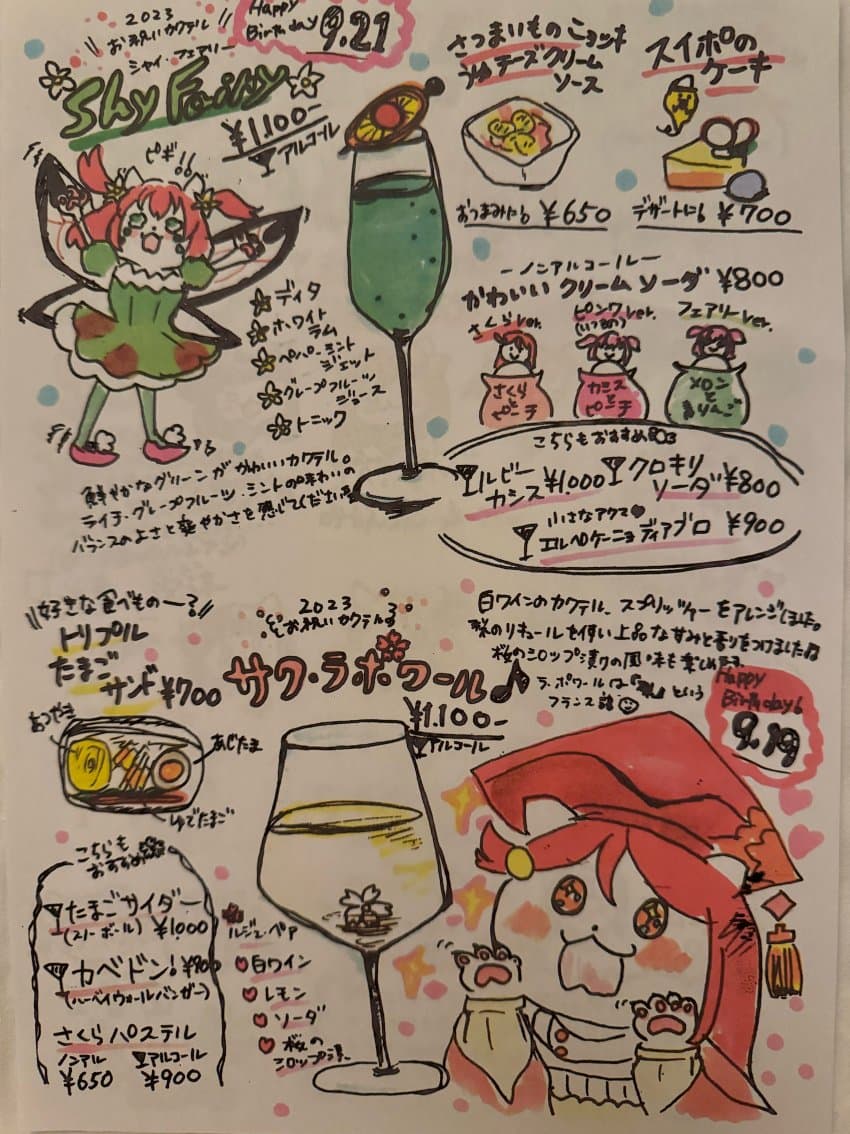 2023
お祝いカクテル
シャイ・フェアリー
Shy Fairy
Happy
Birthday
9.21
¥1.100-
アルコール
ピギ!!
ディタ
ホワイト
ラム
ペパーミント
ジェット
グレープフルーツ
ジュース
トニック
鮮やかなグリーンがかわいいカクテル。
ライチ・グレープフルーツ・ミントの味わいの
バランスのよさと爽やかさを感じてください
さつまいものニョッキ
うゆチーズクリーム
ソース
おつまみにも ¥650
スイポの
ケーキ
デザートにも ¥700
ーノンアルコールー
かわいい クリームソーダ ¥800
さくらver.
ピンクver.
(いつもの)
フェアリーver.
さくら
と
ピーチ
カシス
と
ピーチ
メロン
と
青りんご
こちらもおすすめ
ルビー
カシス ¥1.000
クロキリ
ソーダ ¥800
小さなアクマ
エルペケーニョ ディアブロ ¥900
好きな食べもの
トリプル
たまご
サンド ¥700
あつやき
あじたま
ゆでたまご
2023
お祝いカクテル
サク・ラ・ポワール
¥1.100-
アルコール
白ワインのカクテル、スプリッツァーをアレンジしました。
梨のリキュールを使い上品な甘みと香りをつけました
桜のシロップ漬の風味も楽しめます
ラ・ポワールは「梨」という
フランス語
Happy
Birthday
9.19
こちらも
おすすめ
たまごサイダー
(スノーボール) ¥1.000
カベドン! ¥900
(ハーベイウォールバンガー)
さくらパステル
ノンアル アルコール
¥650 ¥900
ルジェ・ペア
白ワイン
レモン
ソーダ
桜の
シロップ漬